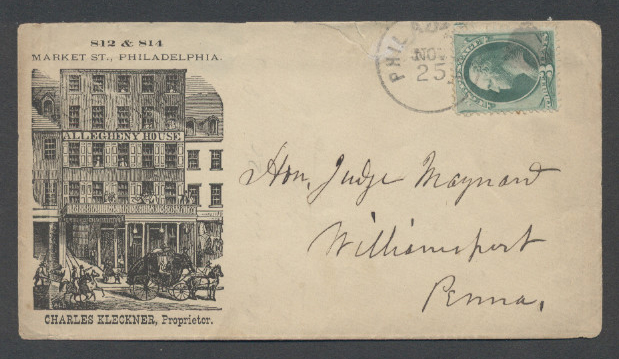 812 & 814
MARKET ST., PHILADELPHIA.
ALLEGHENY HOUSE
CHARLES KLECKNER, Proprietor.
NOV
25
Hon, Judge Maynard
Williamsport
Penna,